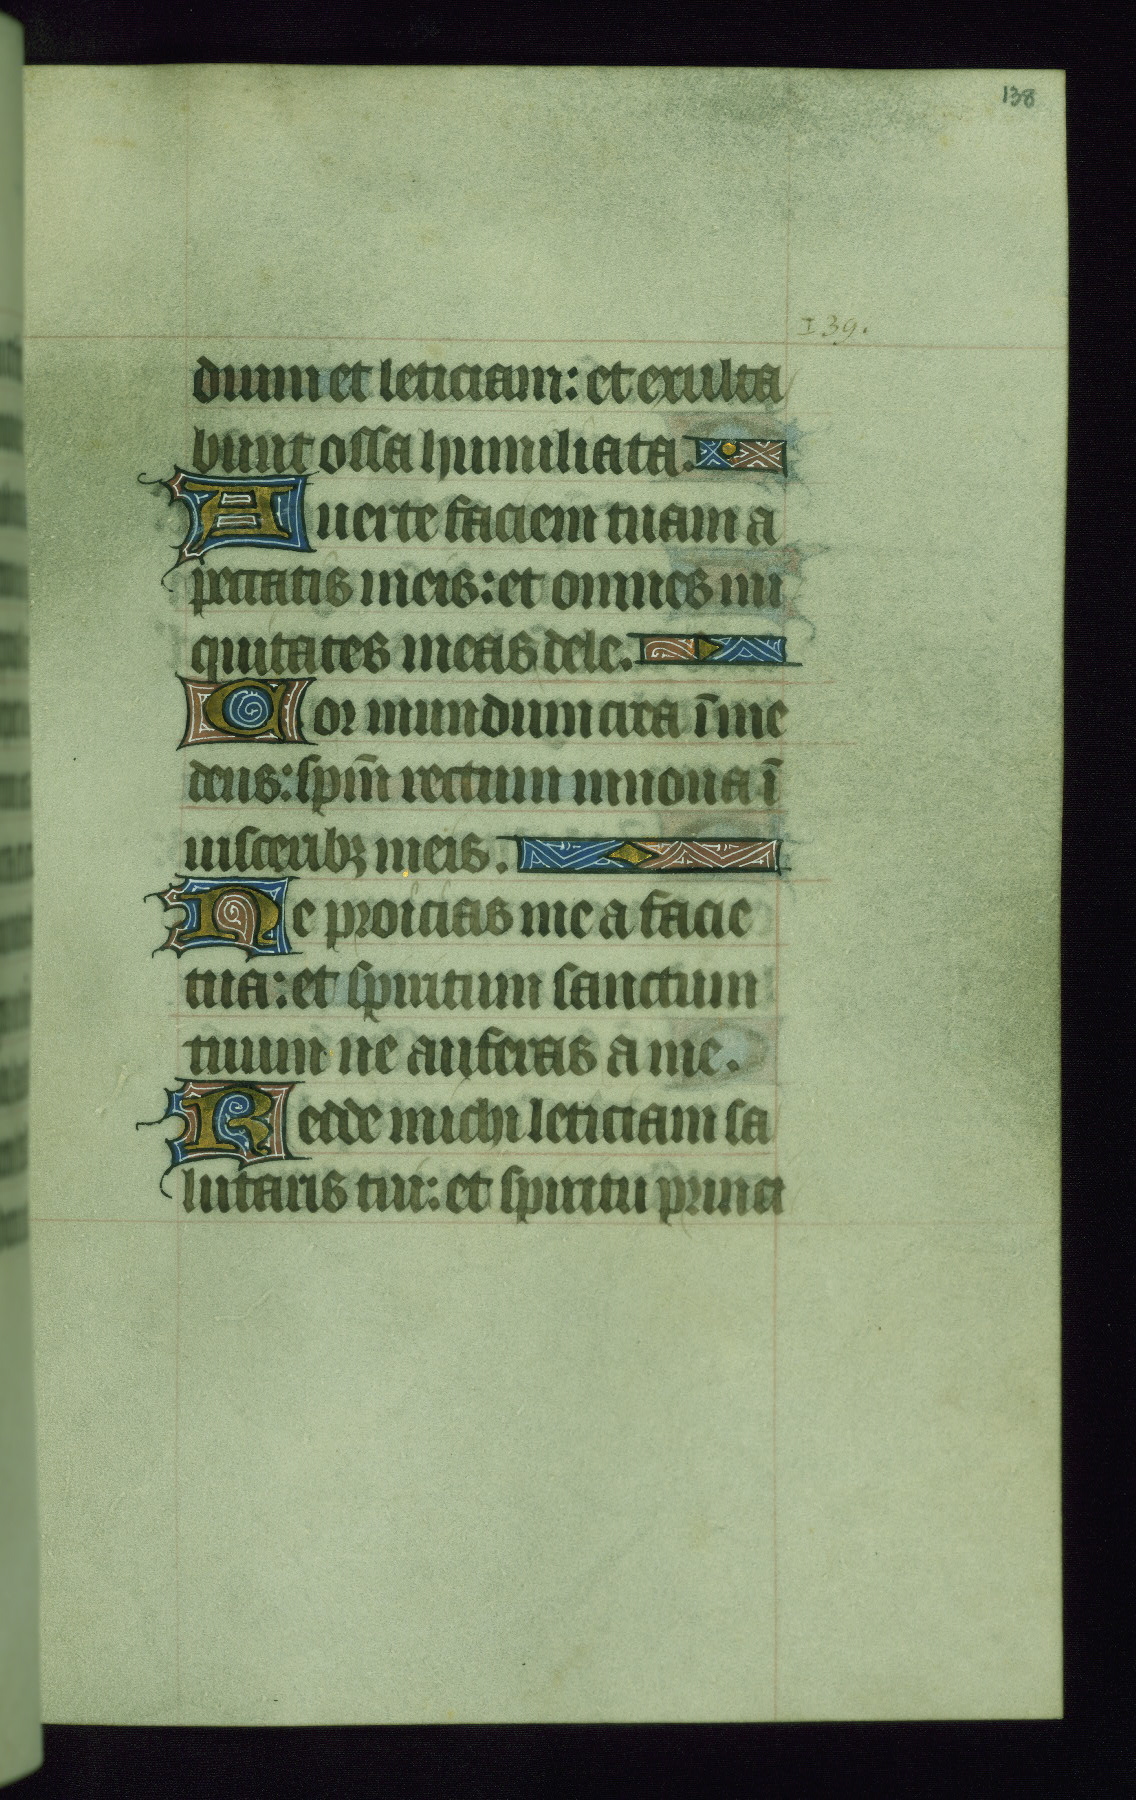 138
139.
dium et leticiam: et exulta
bunt ossa humiliata.
Auerte faciem tuam a
peccatis meis: et omnes ini
quitates meas dele.
Cor mundum crea ī me
deus: spm̄ rectum innoua ī
uisceribꝫ meis.
Ne proicias me a facie
tua: et spiritum sanctum
tuum ne auferas a me.
Redde michi leticiam sa
lutaris tui: et spiritu princi